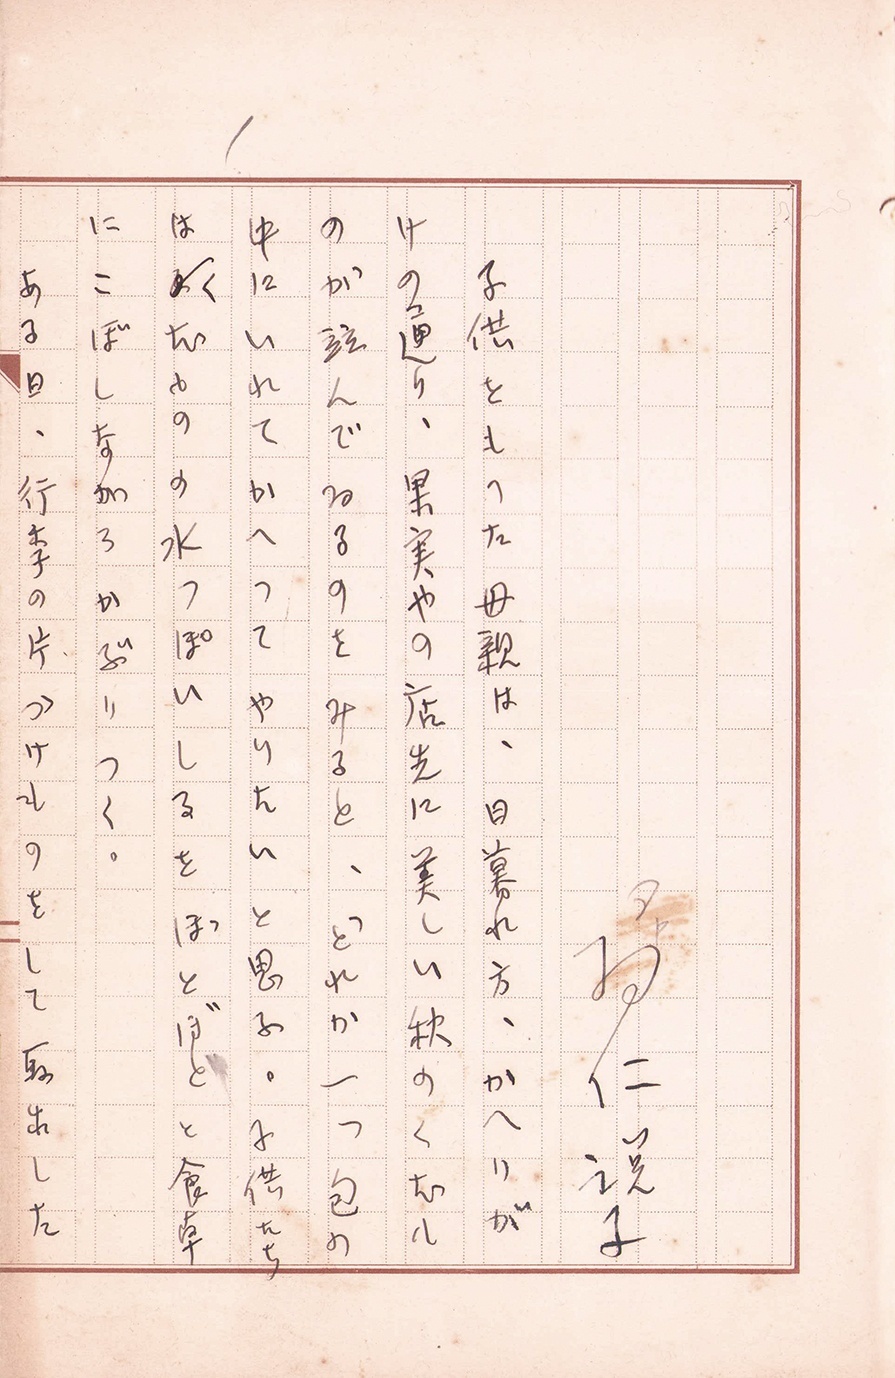 仁説子
子供をもつた母親は、日暮れ方、かへりが
けの通り、果実やの店先に美しい秋のくだも
のが並んでゐるのをみると、どれか一つ包の
中にいれてかへつてやりたいと思ふ。子供たち
はくだものの水つぽいしるをぽとぽとと食卓
にこぼしながらかぶりつく。
ある日、行李の片づけものをして取出した